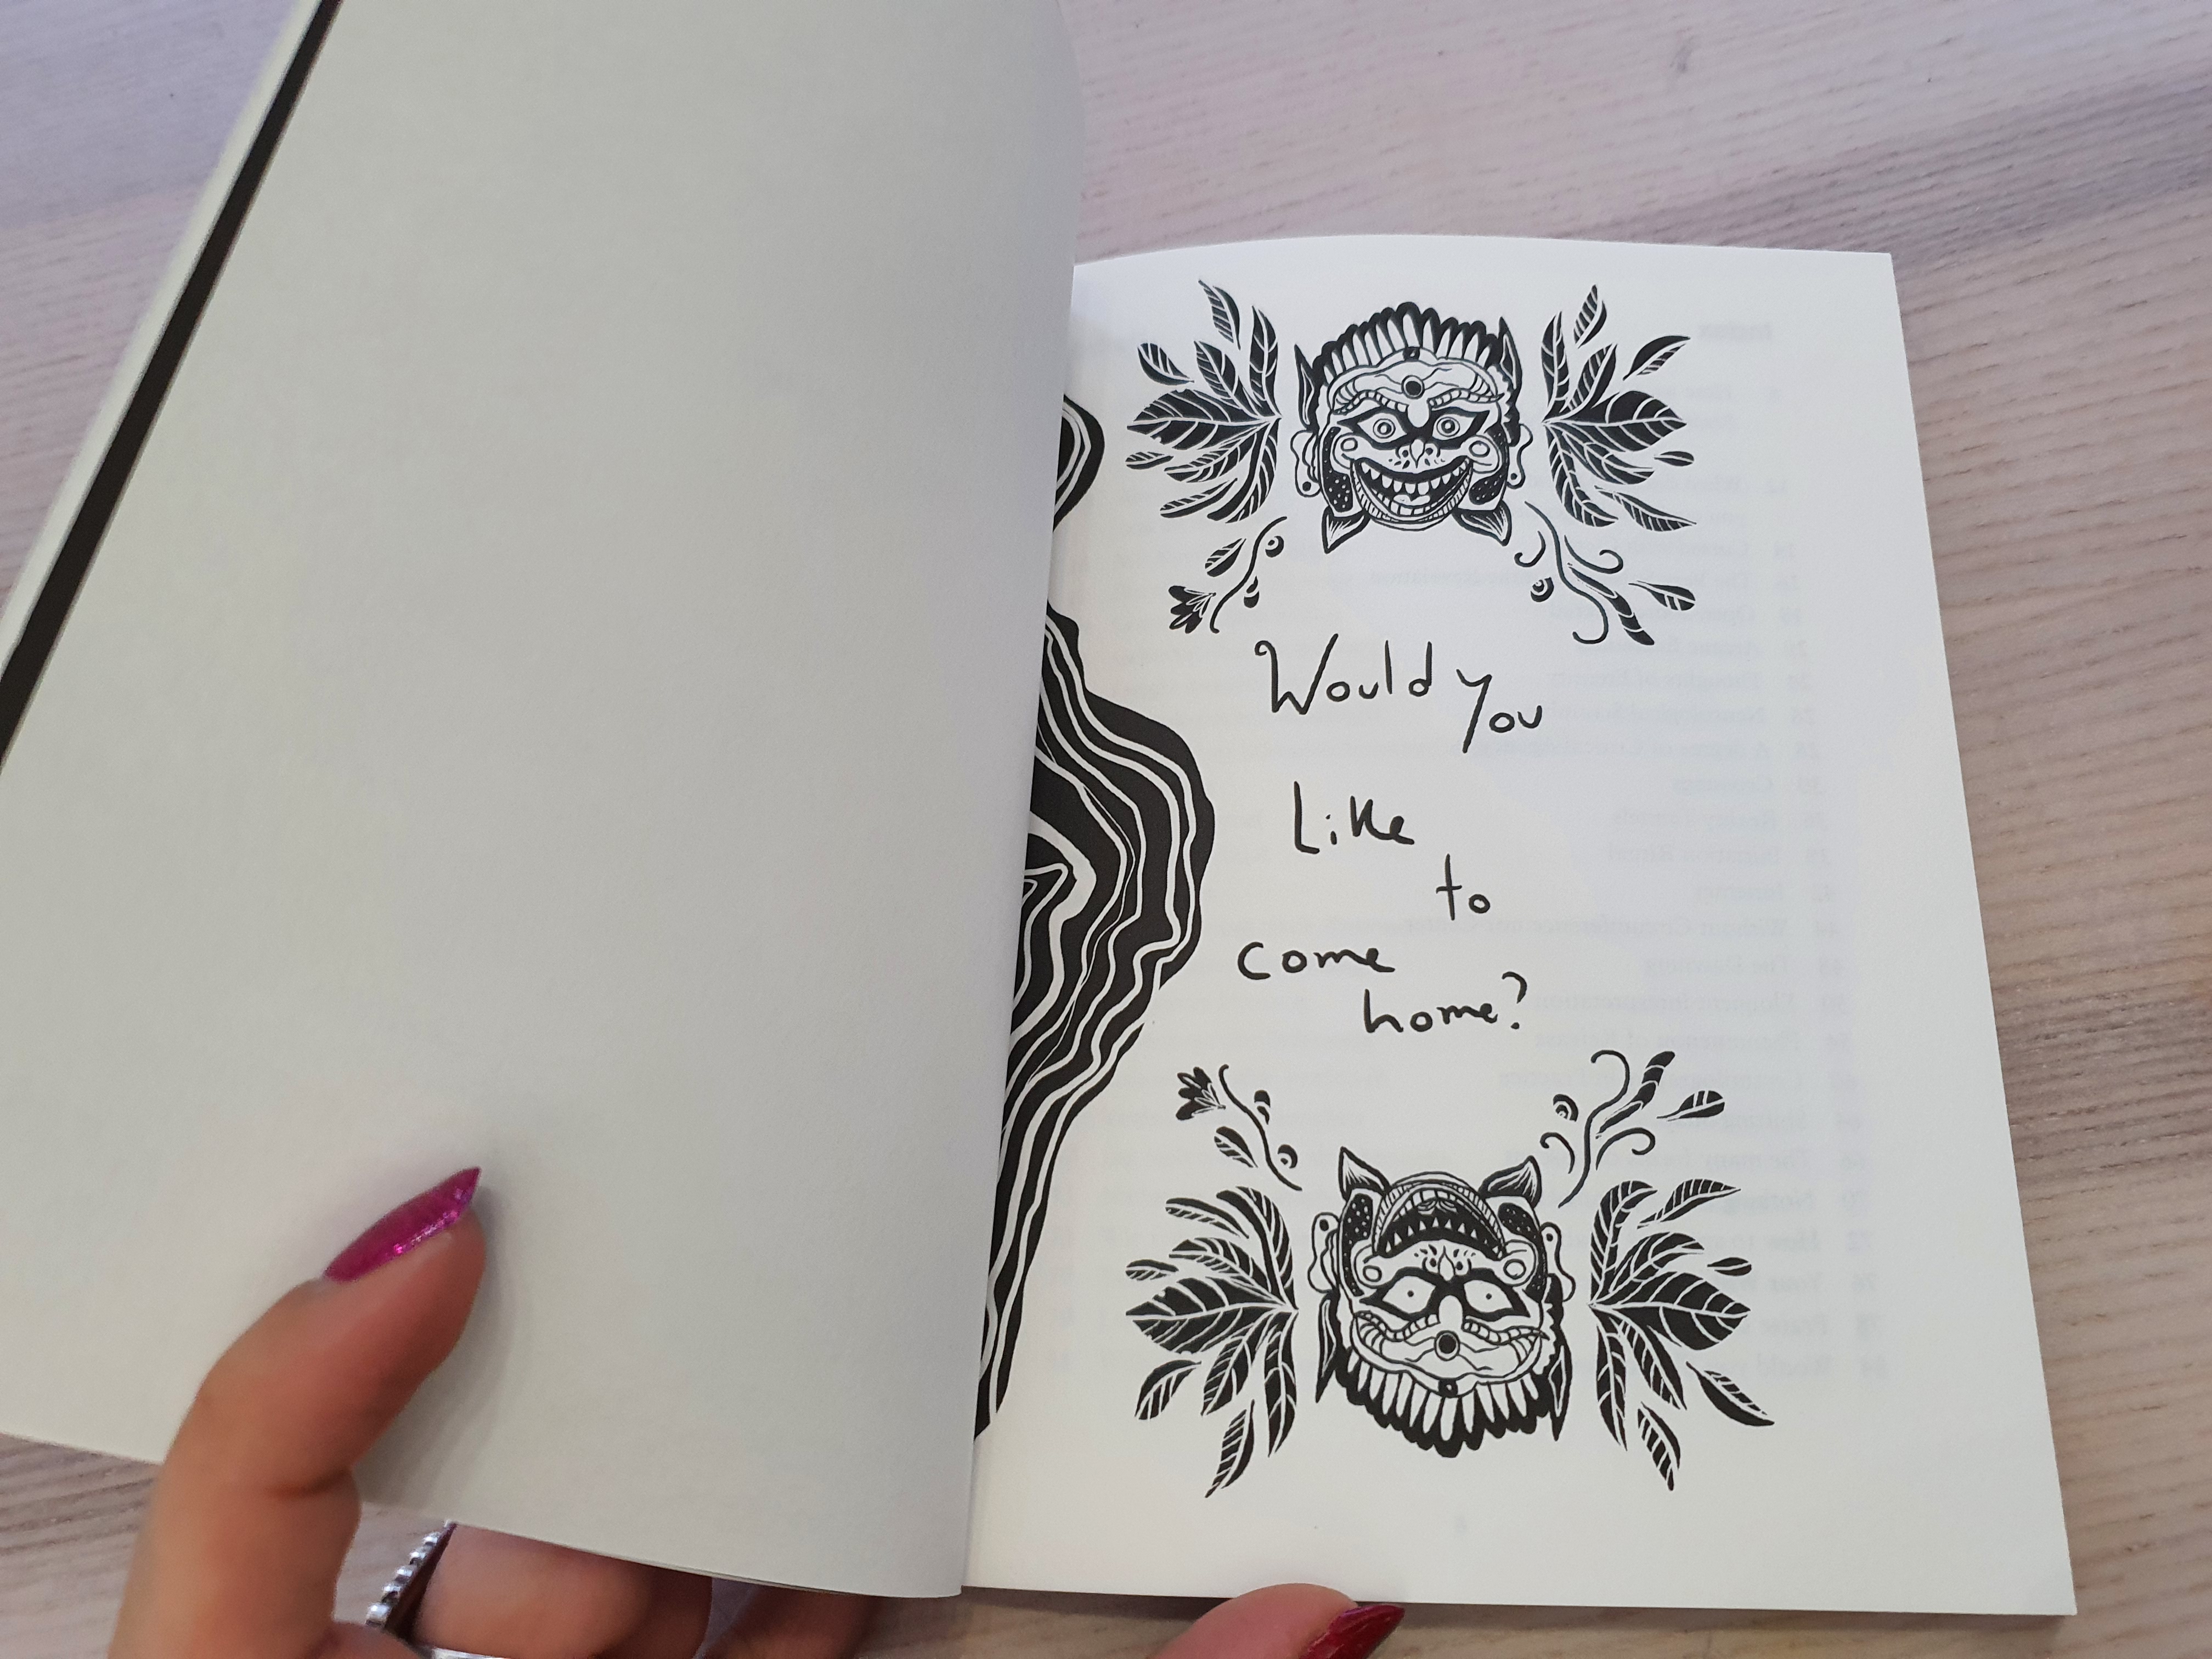 Would you
Like
to
come
home?